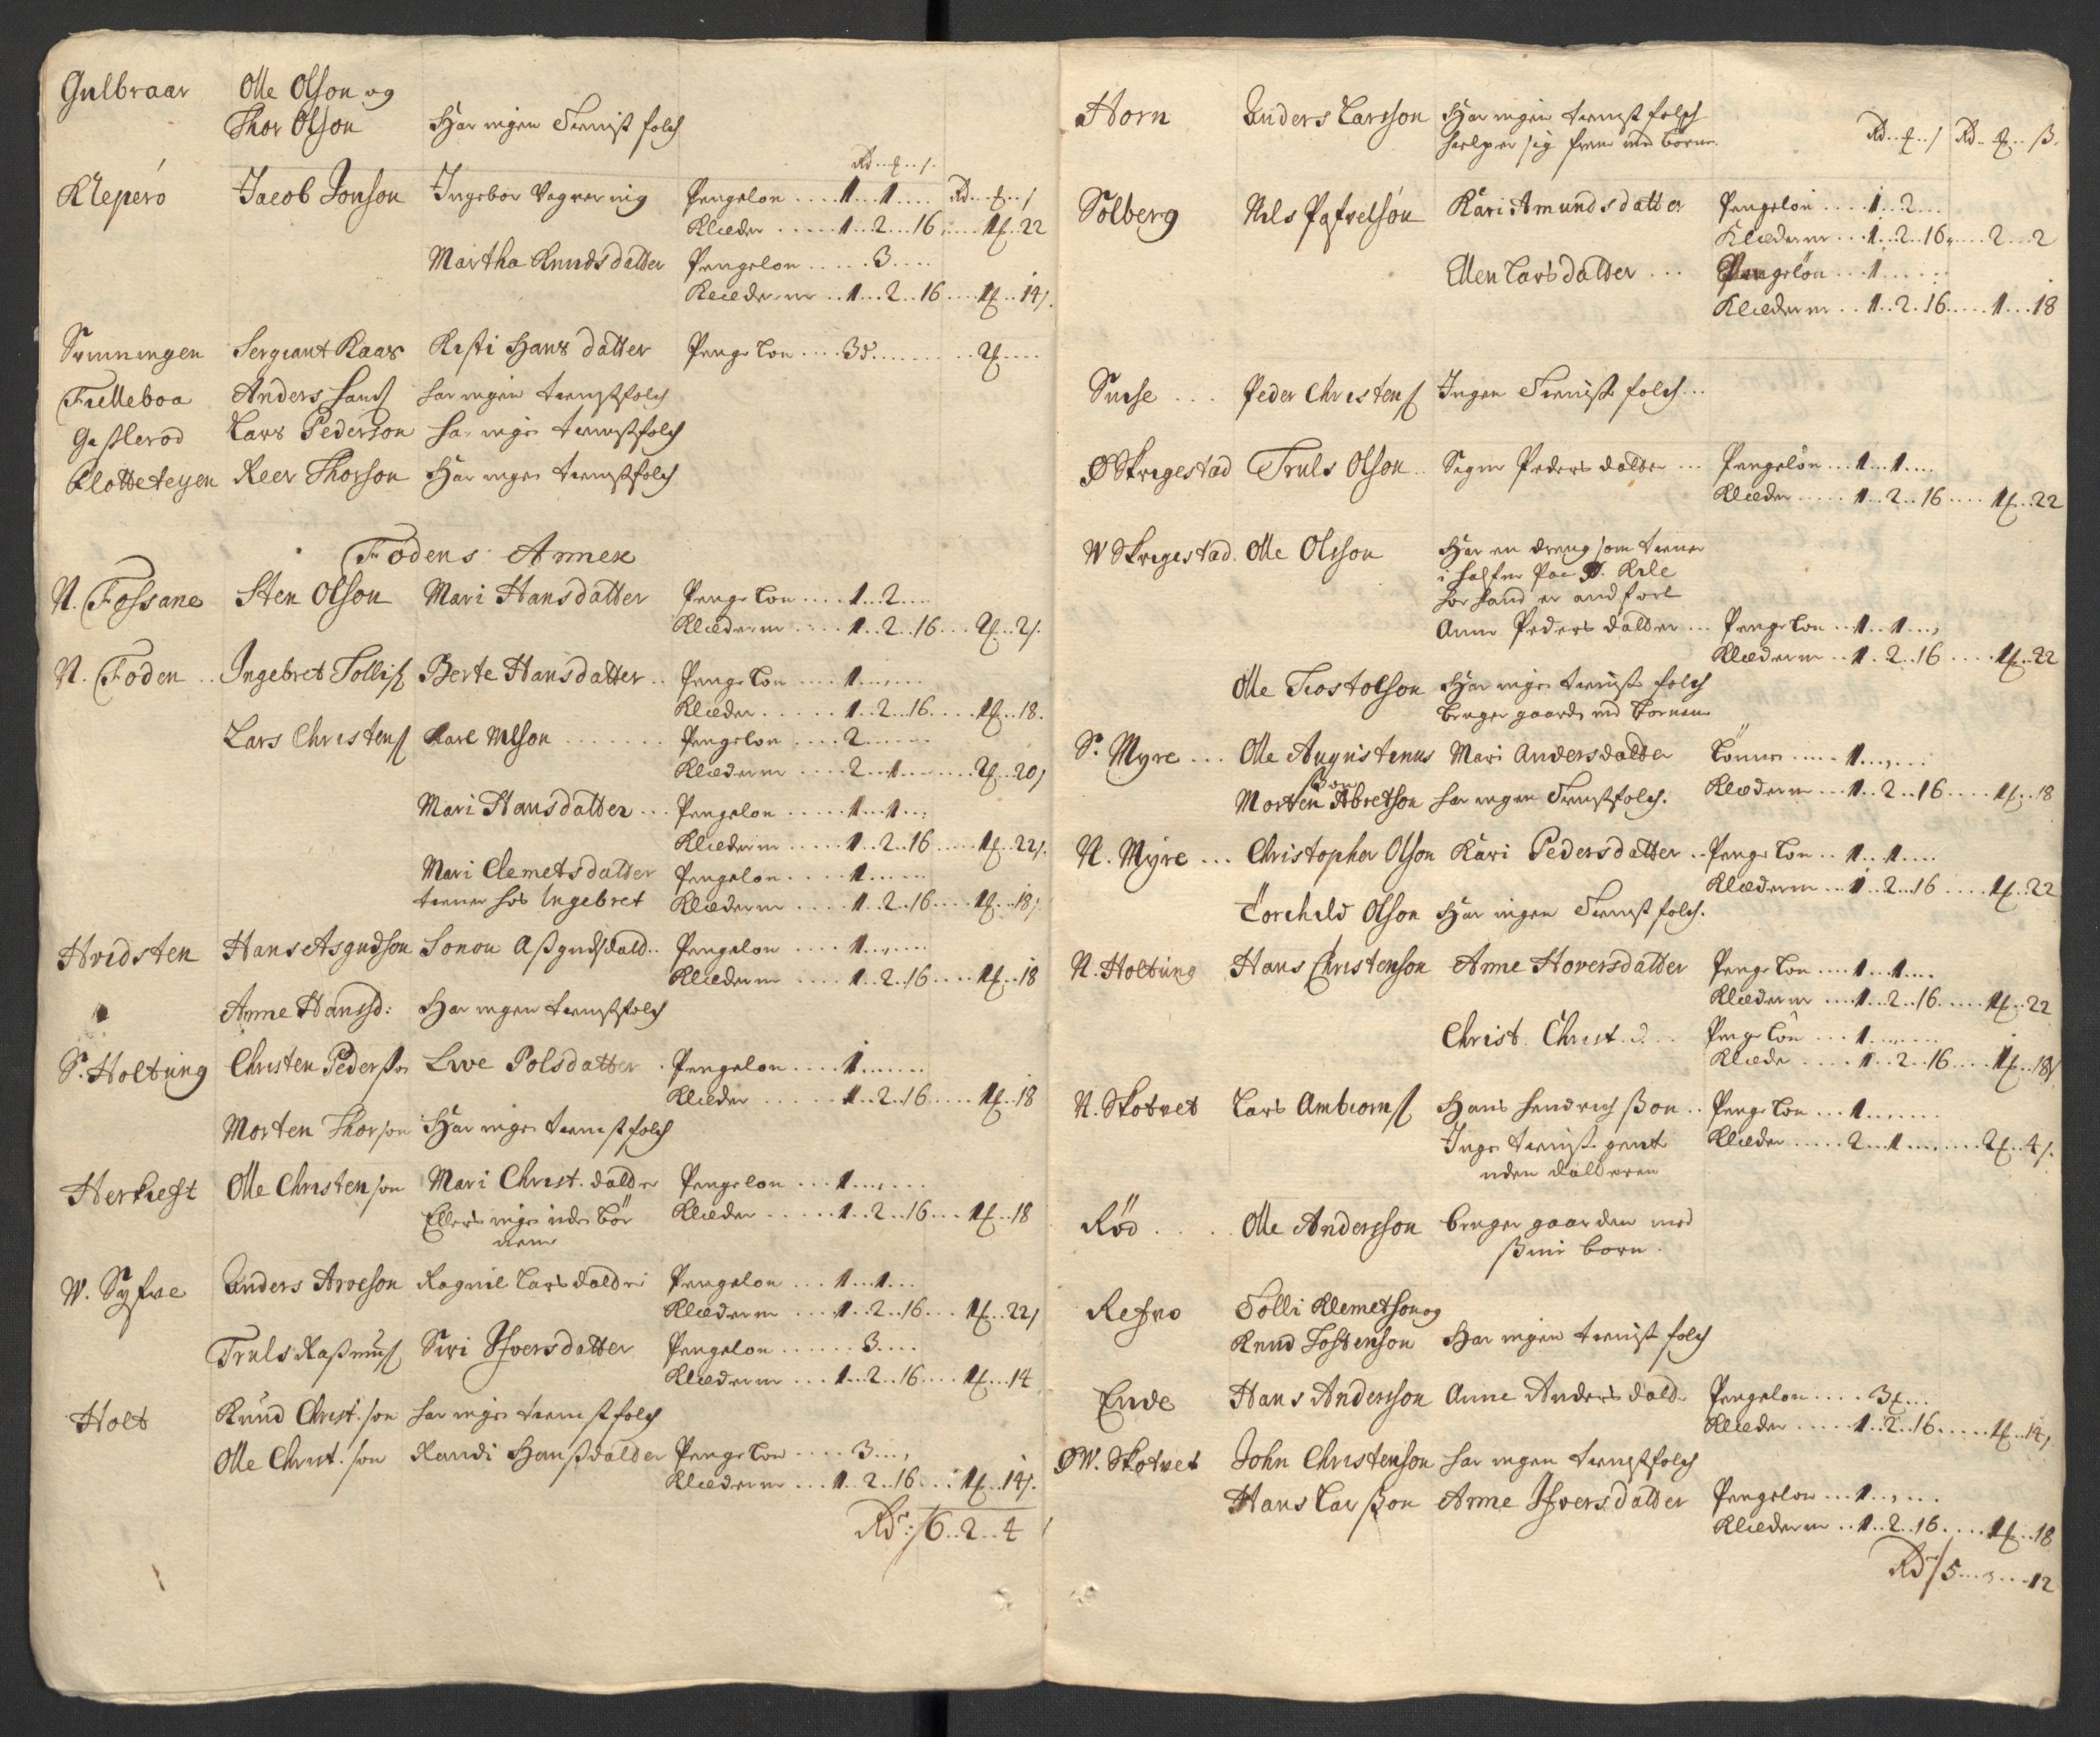 Gulbraar Olle Olson og
Thor Olson Har ingen Tienist folch
Rd..ₓ..s.
Klepero Jacob Jonson Ingebor Pengelon ....1...1.... Rd...s
Klæder .....1..2...16.....1..22
Martha Knudsdatter Pengelon .....3....
Klæderne ..1...2..16....1..14s.
Sergiant Kaas Kisti Hans datter Penge Lon ....3 .......2....
Tielleboa Anders har ingen tienistfolch
Lars Pederson har ingen tienistfolch
Reer Thorson Har ingen tienistfolch
Fodens Annex
N. Fossane Sten Olson Mari Hansdatter Penge Lon ....1..2....
Klæderne ....1..2..16...2..2s.
N. Foden .. Ingebret Tollis Berte Hansdatter .. Penge Lon ....1......
Klæder ......1..2..16....1..18.
Lars Christens Karl Nilson ....... Pengelon ....2......
Klæderne ....2...1.......2..20s
Mari Hansdatter ... Pengelon .....1...1...
Klæderne .....1..2..16.....1..22s.
Mari Clemetsdatter Pengelon ....1......
tiener hos Ingebret Klæderne ....1..2..16....1..18s
Hvidsten Hans Asgudson datt.. Pengelon ....1......
Klæderne ....1..2..16....1..18
Anne Hansd: Har ingen tienistfolch
S. Holtung Christen Pederson Live Polsdatter . Pengelon ....1.......
Klæder ......1..2..16.....1..18
Morten Thorson Har ingen tienistfolch
Olle Christenson Mari Christ. datter Pengelon ...1......
Ellers ingen uden Bør Klæder ......1..2..16...1..18
nene
W. Syfve Anders Arveson Ragnil Lars datter Pengelon ...1...1...
Klæderne ....1..2..16...1..22s
Truls Rasmus Siri Ifversdatter Pengelon ......3....
Klæderne ...1...2..16....1...14
Holt Knud Christ.son har ingen tienistfolch
Olle Christ.son Randi Hansdatter Penge Lon ....3...
Klæderne ...1..2..16....1..14s.
Rd:16..2..4
Horn Anders Larsson Har ingen tienist folch
hielper sig frem med børnene. Rd...s Rd....ß.
Solberg Nils Pafvelson Kari Amundsdatter Pengelon ....1..2...
Klæderne ...1..2..16.....2...2
Ellen Larsdatter ... Pengelon ...1......
Klæderne ..1..2.16.....1...18
Peder Christens Ingen Tienist folch...
Ø Skregestad Truls Olson .. Peders datter ... Pengelon ...1..1....
Klæder .....1..2..16....1...22
W Skregestad. Olle Olsson Har en dreng som tiener
Anne Peders datter ... Penge Lon ..1..1...
Klæderne ..1..2..16....1..22
Olle Tostolson Har ingen tienist folch
bruger gaarden med børnene
S. Myre ... Olle Augustinus Mari Andersdatter Lønnen .....1......
Morten Abretson har ingen Tienistfolch. Klæderne ...1..2..16.....1..18
N. Myre ... Christopher Olson Kari Pedersdatter .. Penge Lon ..1..1....
Klæderne ...1..2..16....1..22
Torchild Olson Har ingen Tienist folch.
N. Holtung Hans Christenson Anne Hoversdatter Penge Lon ....1..1....
Klæderne ....1..2..16.....1..22
Christ. Christ. d... Penge Lon ...1......
Klæde ....1..2..16....1..18s
N. Skotvet Lars Ambiorns Hans Hendrich ßon .. Penge Lon ...1.......
Ingen tienist. Klæder .....2...1.......2..4s.
uden datteren
Rød.... Olle Andersson bruger gaarden med
ßine børn.
Refvo Tolli Klemetson og
Knud Tostenson Har ingen tienist folch
Ende Hans Andersson Anne Anders datt. Pengelon ....3...
Klæder .....1..2..16.....1..14s
ØW. Skotvet John Christenson har ingen tienistfolch
Hans Larßon Anne Ifversdatter Pengelon ...1......
Klæderne ..1..2..16....1..18
Rd15...3...12